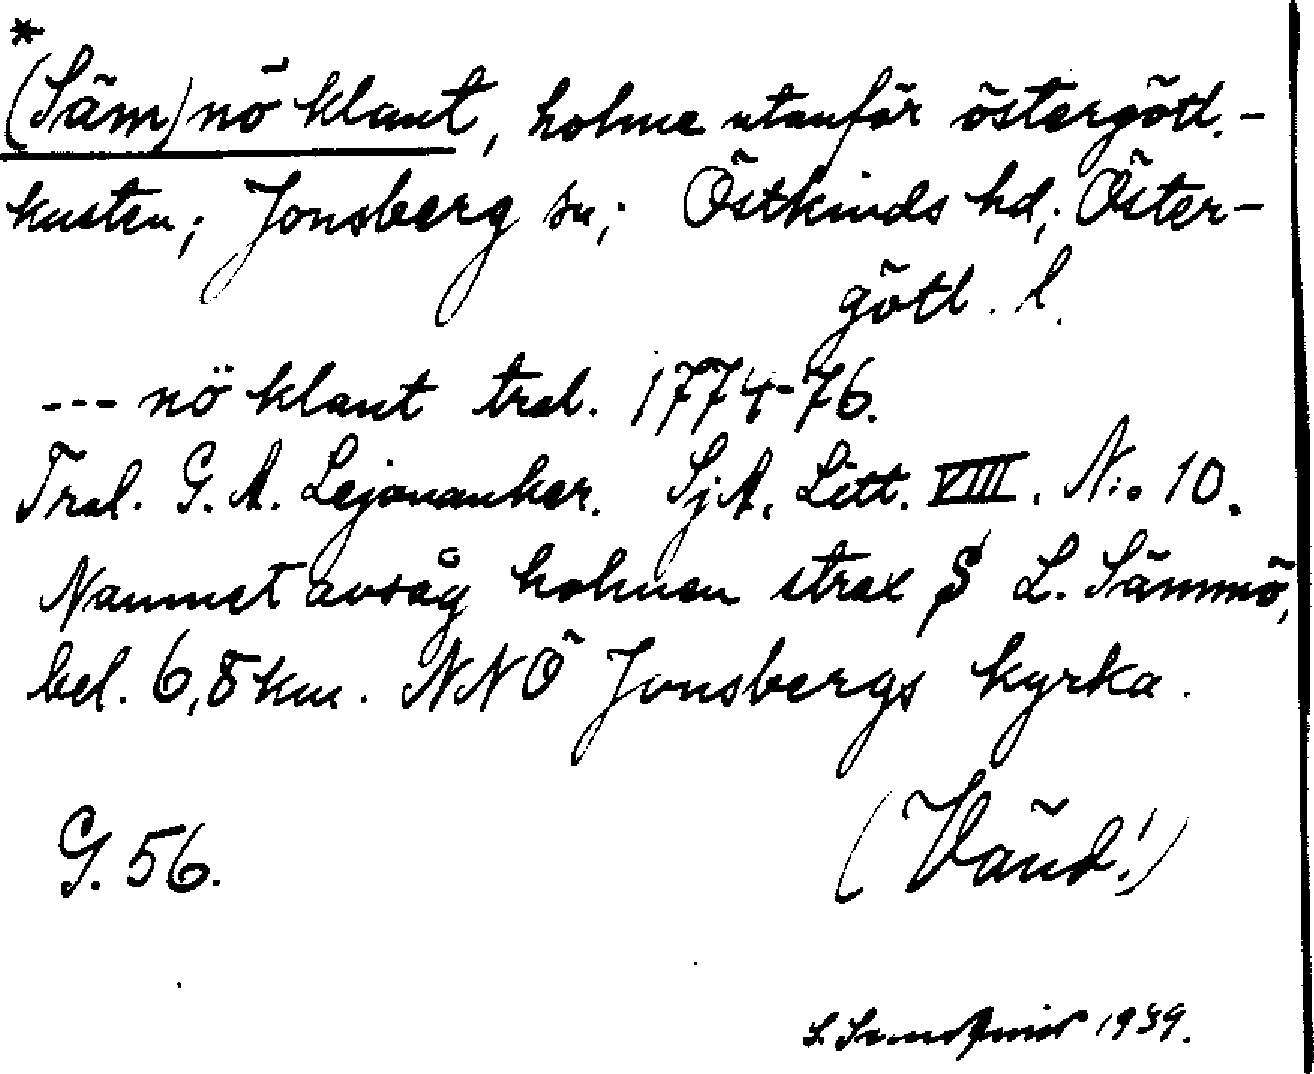 *
(Säm)nö klant, holme utanför östergötl.-
kusten; Jonsberg sn; Östkinds hd; Öster-
götl. l.
--- nö klant tral. 1774-76.
Tral. G. A. Lejonanker. SjA. Litt. VIII. N:o 10.
Namnet avsåg holmen strax S L. Sämmö,
bel. 6,8 km. NNÖ Jonsbergs kyrka.
G. 56.
(Vänd!)
S. 1939.